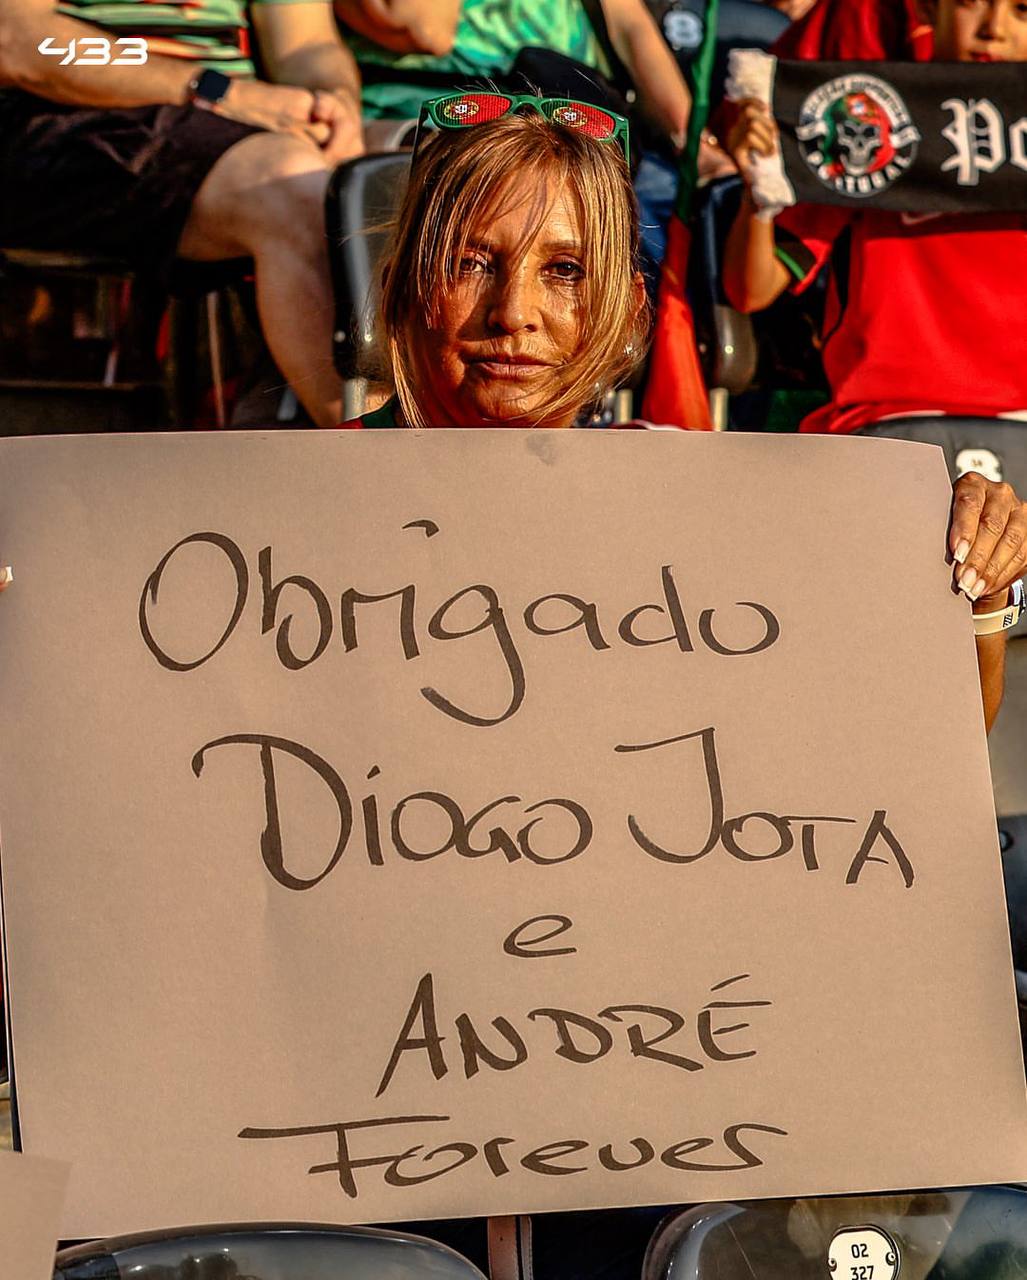 433
8
PORTUGAL
Po
Obrigado
Diogo Jota
e
André
Forever
02
327